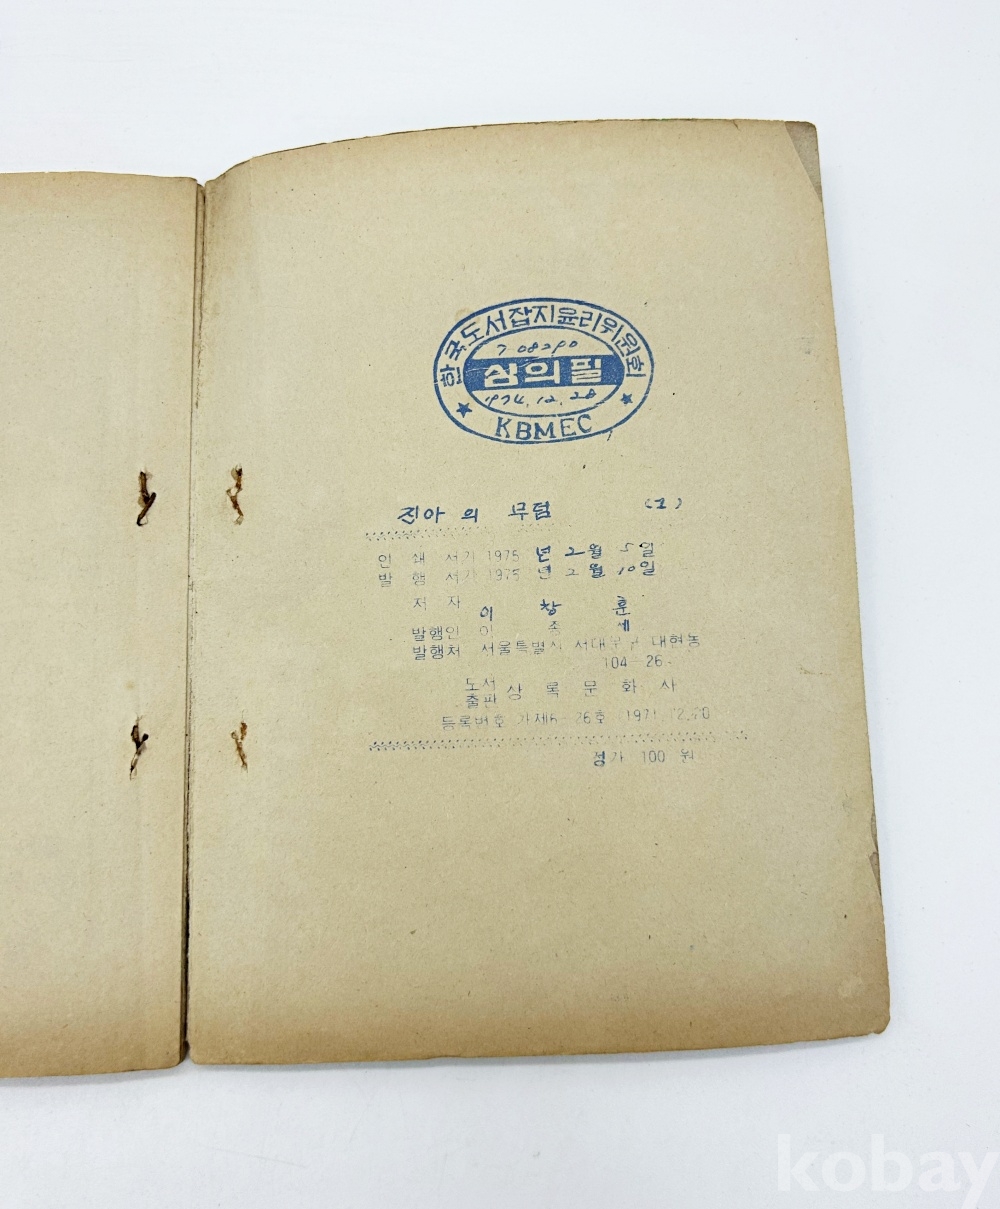 한국도서잡지윤리위원회
708290
심의필
1974.12.28
KBMEC
진아의 무덤 (1)
인쇄 서기 1975년 2월 5일
발행 서기 1975년 2월 10일
저자 이창훈
발행인 이종세
발행처 서울특별시 서대문구 대현동
104-26
도서출판 상록문화사
등록번호 가제6-26호 1971.12.20
정가 100 원
kobay